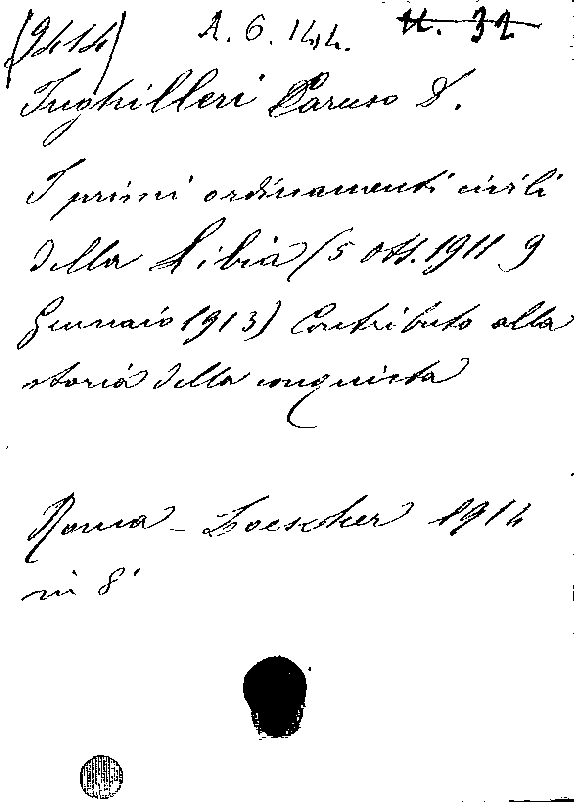 (9414) A. 6. 144. H. 32
Inghilleri Caruso D.
I primi ordinamenti civili
della Libia (5 ott. 1911 9
Gennaio 1913) Contributo alla
storia della conquista
Roma - Loescher 1914
in 8°